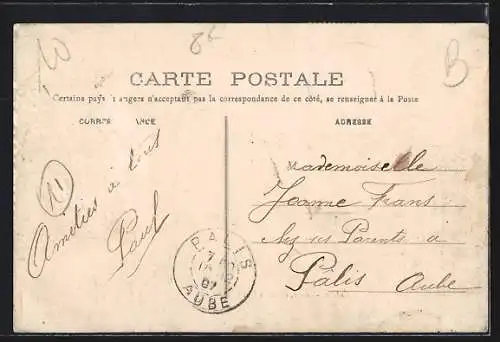 10
86
B
CARTE POSTALE
Certains pays angers n'acceptant pas la correspondance de ce côté, se renseigner à la Poste
CORRES ANCE
ADRESSE
11
Amitiés à tous
Paul
Mademoiselle
Jeanne Frans
chez ses Parents à
Pâlis Aube
PALIS
7
07
AUBE